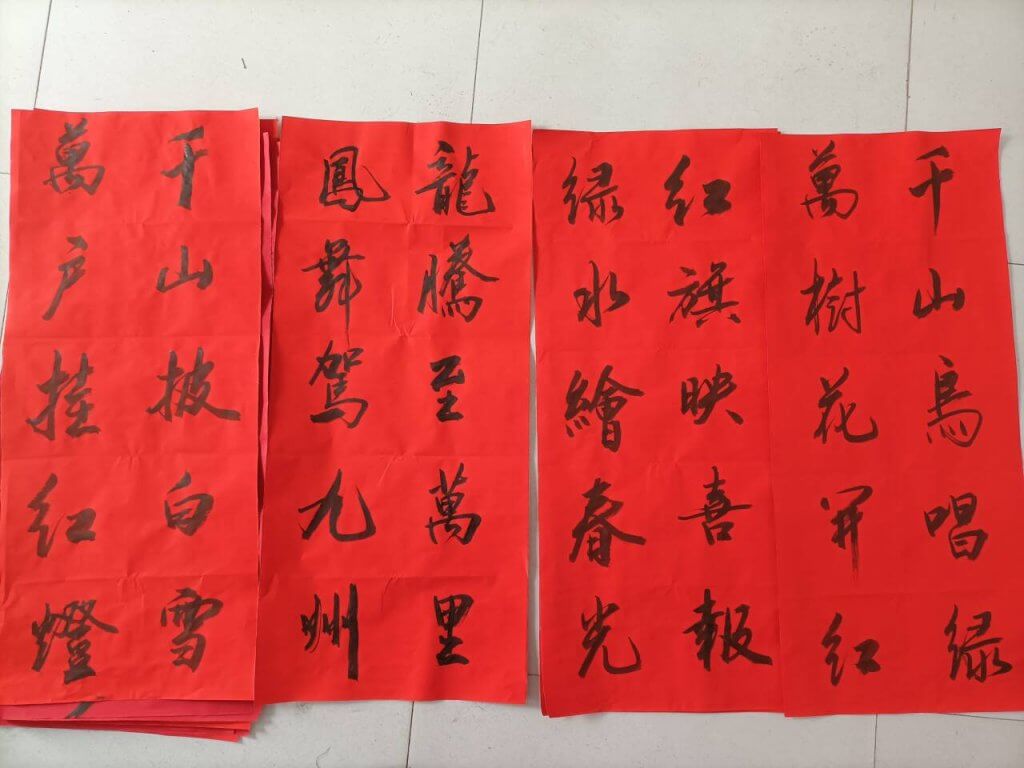 千山鳥唱绿
萬樹花開红
红旗映喜報
绿水繪春光
龍騰至萬里
鳳舞駕九州
千山披白雪
萬户挂红燈